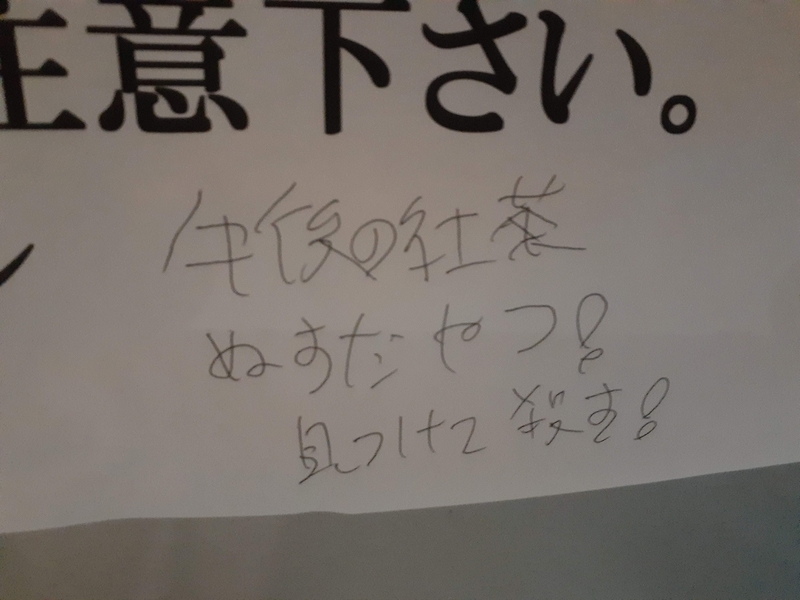 注意下さい。
午後の紅茶
ぬすだやつ!
見つけて殺す!